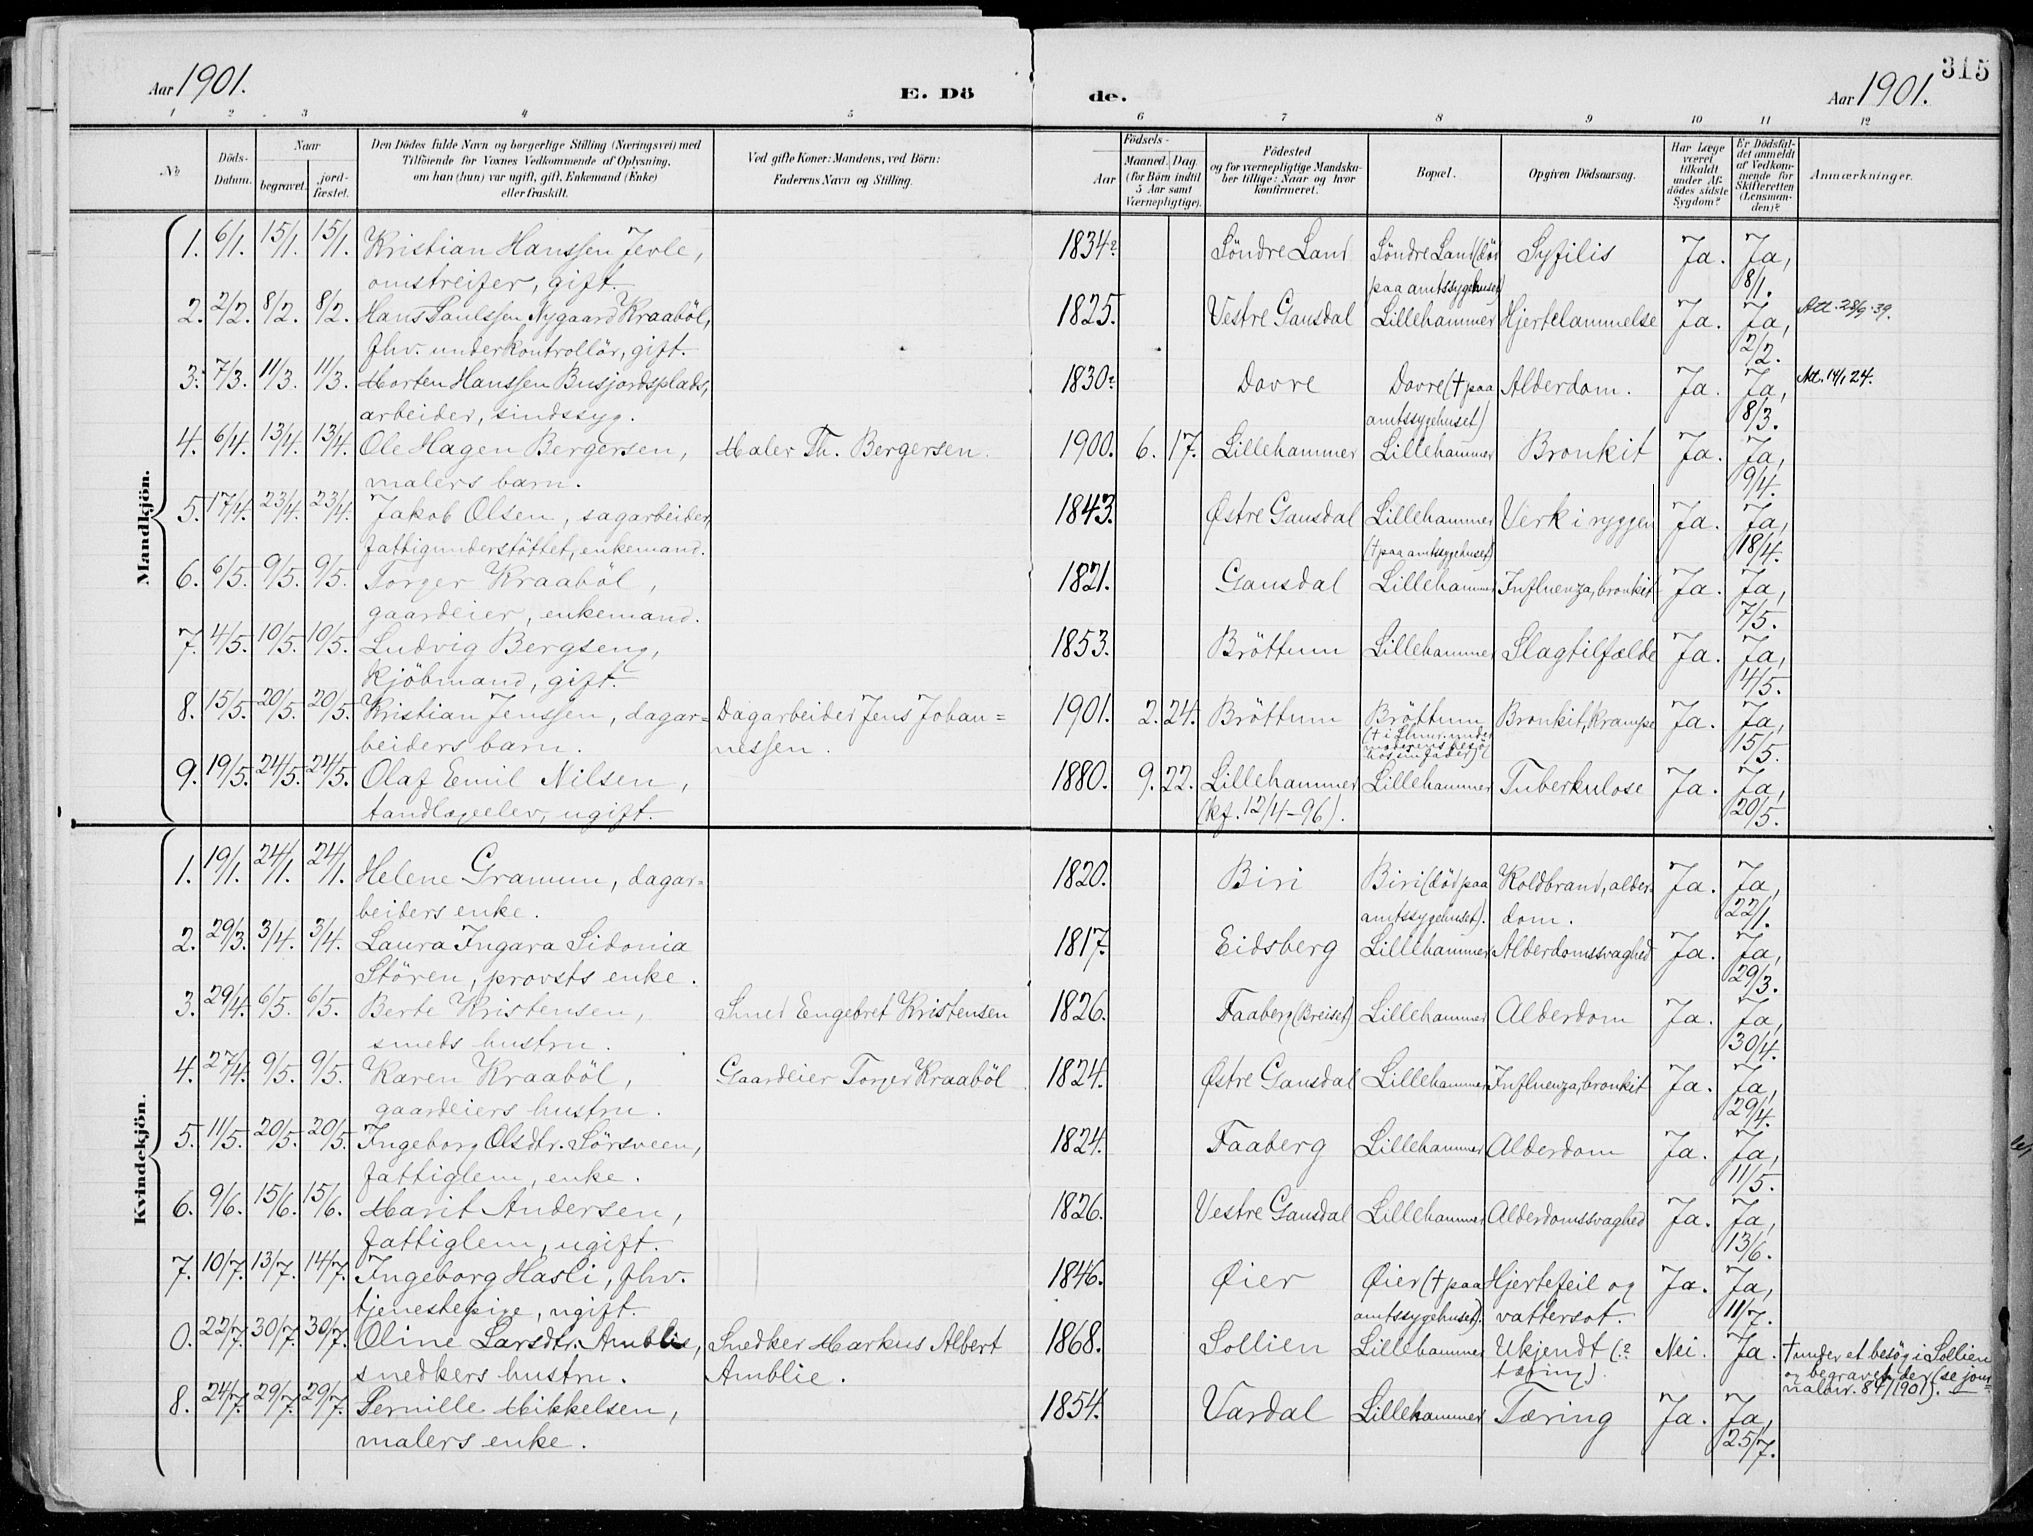 315
Aar 1901.
E. Dö
de.
Aar 1901.
1 2 3 4 5 6 7 8 9 10 11 12
№
Döds-Datum.
Naar
begravet.
jord-fæstet.
Den Dödes fulde Navn og borgerlige Stilling (Næringsvei) med
Tilföiende for Voxnes Vedkommende af Oplysning,
om han (hun) var ugift, gift, Enkemand (Enke)
eller fraskilt.
Ved gifte Koner: Mandens, ved Börn:
Faderens Navn og Stilling.
Födsels-
Aar
Maaned. Dag
(for Börn indtil
5 Aar samt
Værnepligtige).
Födested
og for værnepligtige Mandska-
ber tillige: Naar og hvor
konfirmeret.
Bopæl.
Opgiven Dödsaarsag.
Har Læge
været
tilkaldt
under Af-
dödes sidste
Sygdom?
Er Dödsfal-
det anmeldt
af Vedkom-
mende for
Skifteretten
(Lensman-
den)?
Anmærkninger.
Mandkjön.
1. 6/1. 15/1. 15/1. Kristian Hanssen Jevle, 1834? Söndre Land Söndre Land (död Syfilis Ja. Ja,
omstreifer, gift. paa amtssygehuset) 8/1.
2. 2/2. 8/2. 8/2. Hans Paulssen Nygaard Kraaböl, 1825. Vestre Gausdal Lillehammer Hjertelammelse Ja. Ja, Att. 28/9 39.
fhv. underkontrollör, gift. 2/2.
3. 7/3. 11/3. 11/3. Morten Hanssen Busjordsplads, 1830? Dovre Dovre († paa Alderdom. Ja. Ja, Att. 14/1 24.
arbeider, sindssyg. amtssygehuset) 8/3.
4. 6/4. 13/4. 13/4. Ole Hagen Bergersen, Maler Th. Bergersen. 1900. 6. 17. Lillehammer Lillehammer Bronkit Ja. Ja,
malers barn. 9/4.
5. 17/4. 23/4. 23/4. Jakob Olsen, sagarbeider, 1843. Østre Gausdal Lillehammer Verk i ryggen Ja. Ja,
fattigunderstöttet, enkemand. († paa amtssygehuset) 18/4.
6. 6/5. 9/5. 9/5. Torger Kraaböl, 1821. Gausdal Lillehammer Influenza, bronkit Ja. Ja,
gaardeier, enkemand. 7/5.
7. 4/5. 10/5. 10/5. Ludvig Bergseng, 1853. Bröttum Lillehammer Slagtilfælde Ja. Ja,
kjöbmand, gift. 14/5.
8. 15/5. 20/5. 20/5. Kristian Jenssen, dagar= Dagarbeider Jens Johan= 1901. 2. 24. Bröttum Bröttum Bronkit, krampe Ja. Ja,
beiders barn. nessen. († i Lhmr. under
moderens besög
hos sin fader) 15/5.
9. 19/5. 24/5. 24/5. Olaf Emil Nilsen, 1880. 9. 22. Lillehammer Lillehammer Tuberkulose Ja. Ja,
tandlægeelev, ugift. (kf. 12/4-96). 20/5.
Kvindekjön.
1. 19/1. 24/1. 24/1. Helene Gramum, dagar= 1820. Biri Biri (död paa Koldbrand, alder= Ja. Ja,
beiders enke. amtssygehuset). dom. 22/1.
2. 29/3. 3/4. 3/4. Laura Ingara Sidonia 1817. Eidsberg Lillehammer Alderdomssvaghed Ja. Ja,
Stören, provsts enke. 29/3.
3. 29/4. 6/5. 6/5. Berte Kristensen, Smed Engebret Kristensen 1826. Faaberg (Breiset) Lillehammer Alderdom Ja. Ja,
smeds hustru. 30/4.
4. 27/4. 9/5. 9/5. Karen Kraaböl, Gaardeier Torger Kraaböl 1824. Østre Gausdal Lillehammer Influenza, bronkit Ja. Ja,
gaardeiers hustru. 29/4.
5. 11/5. 20/5. 20/5. Ingeborg Olsdtr. Sörsveen, 1824. Faaberg Lillehammer Alderdom Ja. Ja,
fattiglem, enke. 11/5.
6. 9/6. 15/6. 15/6. Marit Andersen, 1826. Vestre Gausdal Lillehammer Alderdomssvaghed Ja. Ja,
fattiglem, ugift. 13/6.
7. 10/7. 13/7. 14/7. Ingeborg Hasli, fhv. 1846. Øier Øier († paa Hjertefeil og Ja. Ja,
tjenestepige, ugift. amtssygehuset). vattersot. 11/7.
0. 22/7. 30/7. 30/7. Oline Larsdtr. Amblie, Snedker Markus Albert 1868. Sollien Lillehammer Ukjendt (? Nei. Ja. † under et besög i Sollien
snedkers hustru. Amblie. tæring). og begravet der (se jour=
nalnr. 84/1901).
8. 24/7. 29/7. 29/7. Pernille Mikkelsen, 1854. Vardal Lillehammer Tæring Ja. Ja,
malers enke. 25/7.